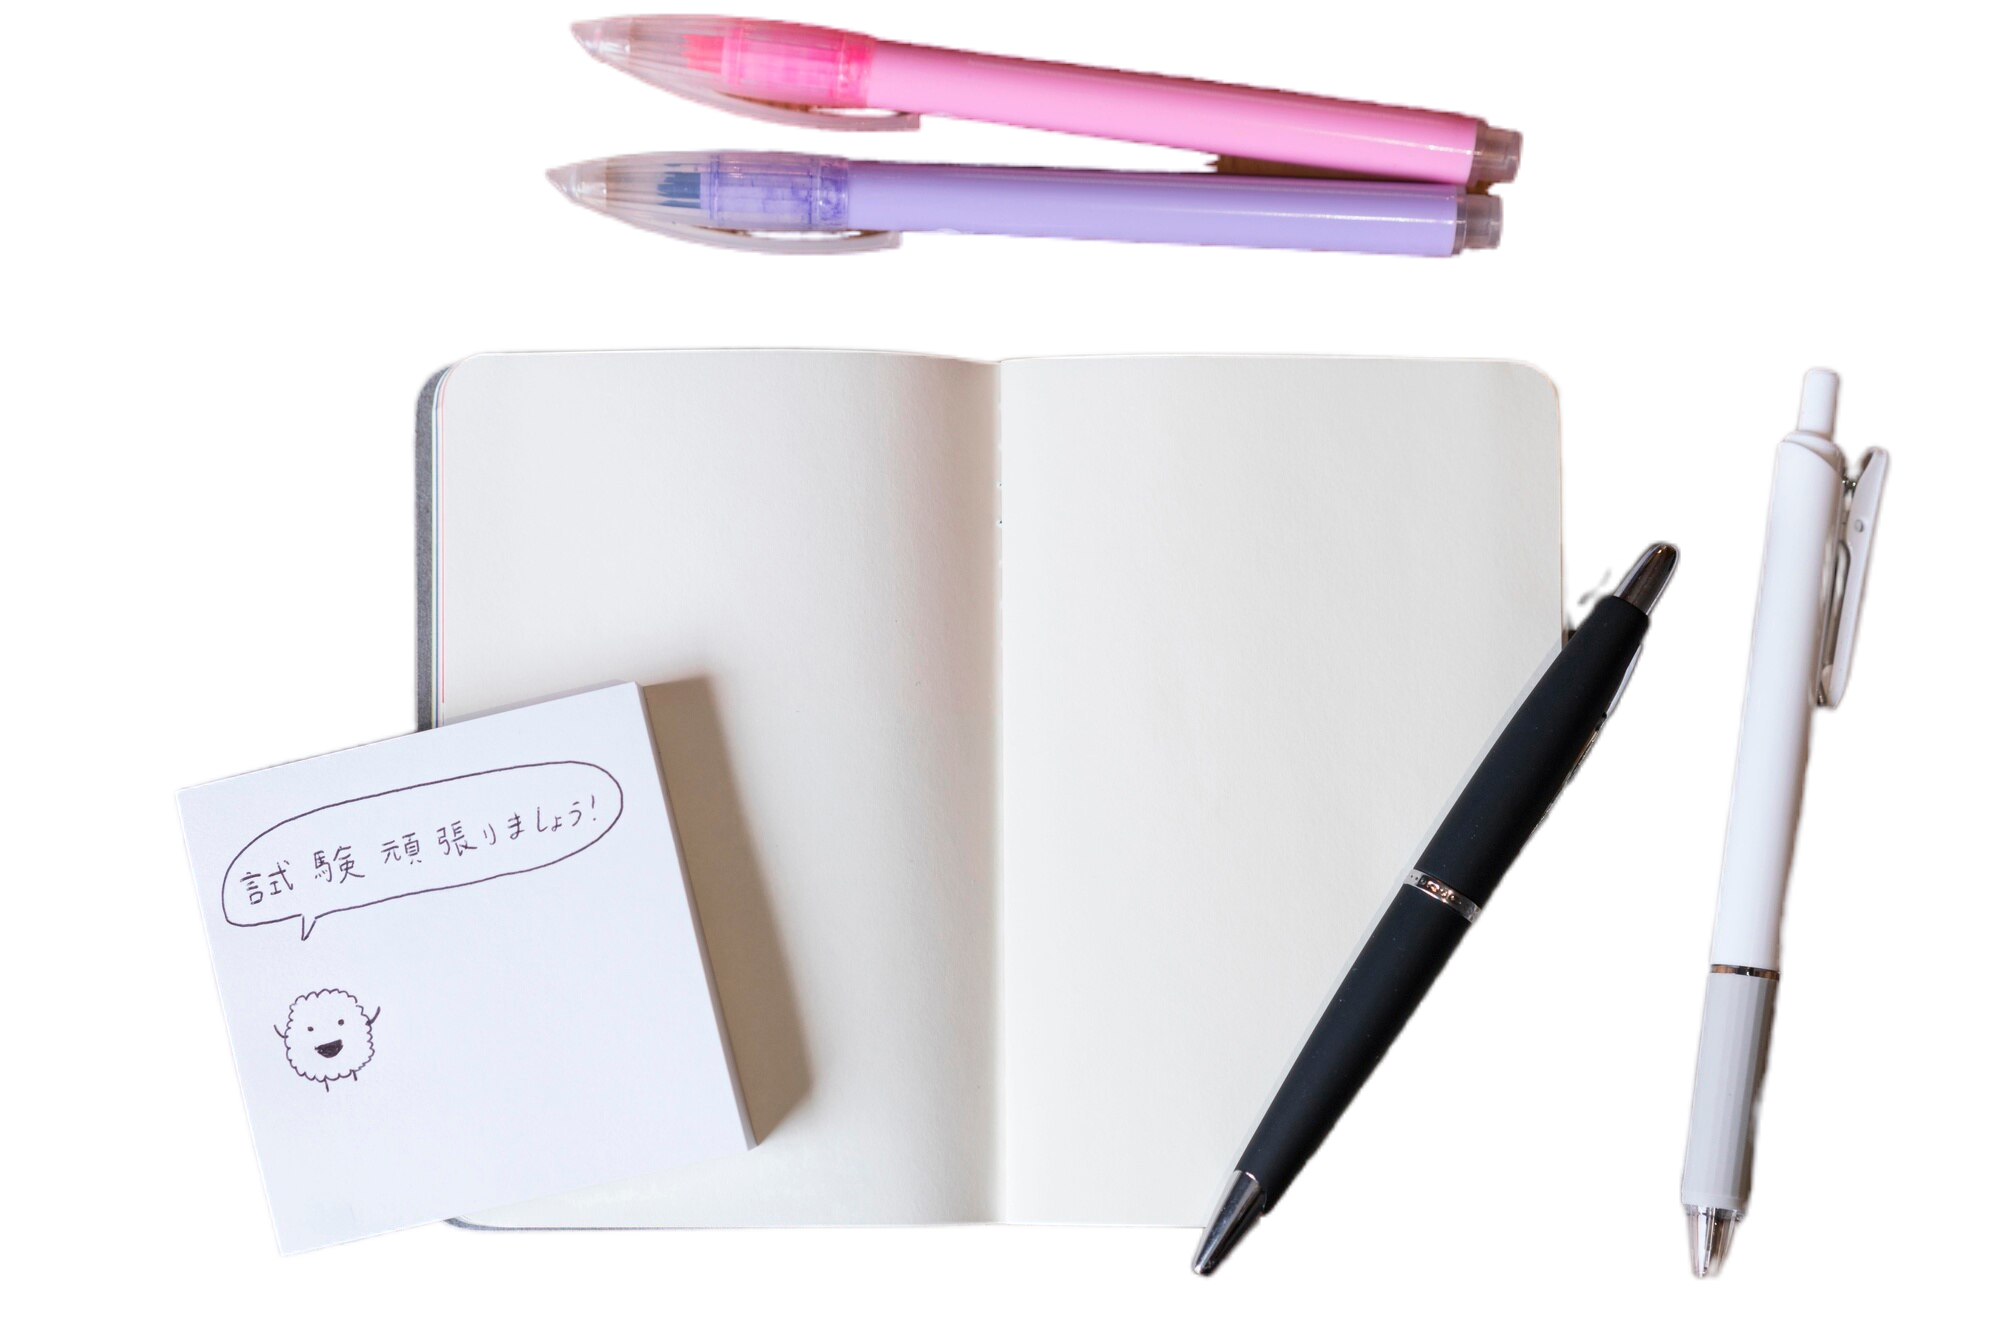 試験頑張りましょう!